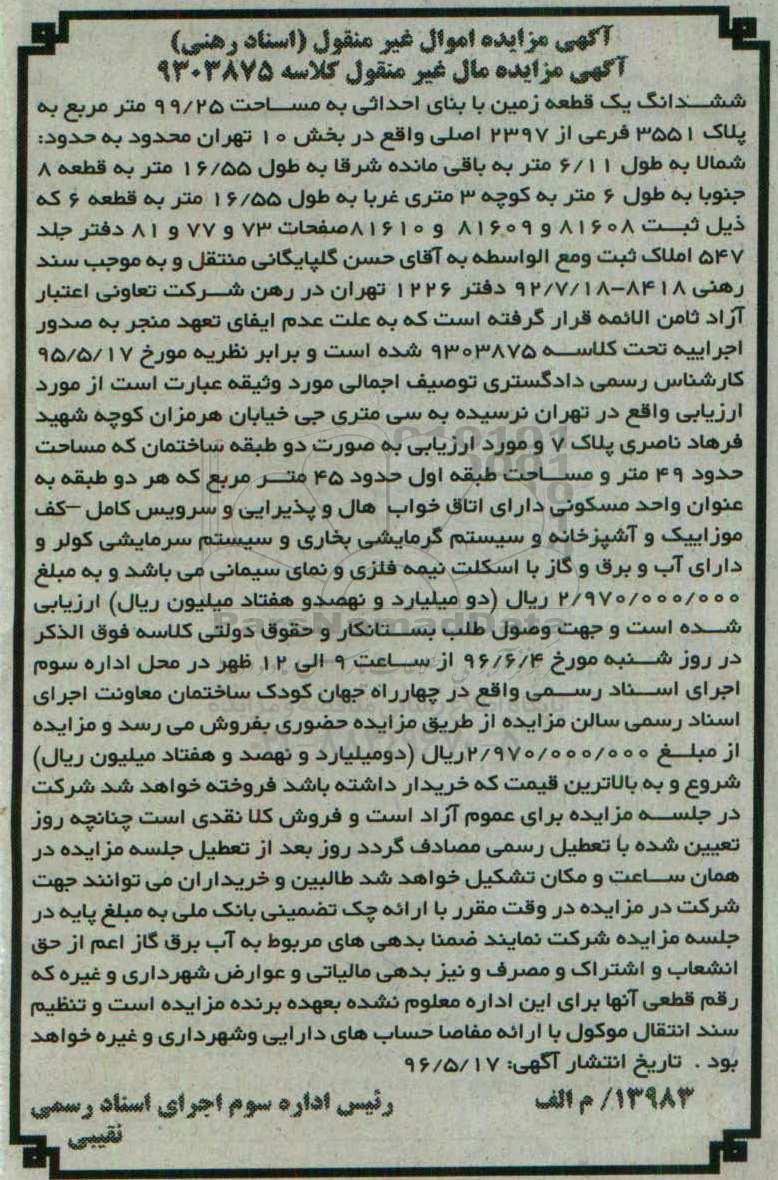 آگهی مزایده اموال غیر منقول (اسناد رهنی)
آگهی مزایده مال غیر منقول کلاسه ۹۳۰۳۸۷۵
ششدانگ یک قطعه زمین با بنای احداثی به مساحت ۹۹/۲۵ متر مربع به
پلاک ۳۵۵۱ فرعی از ۲۳۹۷ اصلی واقع در بخش ۱۰ تهران محدود به حدود:
شمالا به طول ۶/۱۱ متر به باقی مانده شرقا به طول ۱۶/۵۵ متر به قطعه ۸
جنوبا به طول ۶ متر به کوچه ۳ متری غربا به طول ۱۶/۵۵ متر به قطعه ۶ که
ذیل ثبت ۸۱۶۰۸ و ۸۱۶۰۹ و ۸۱۶۱۰صفحات ۷۳ و ۷۷ و ۸۱ دفتر جلد
۵۴۷ املاک ثبت ومع الواسطه به آقای حسن گلپایگانی منتقل و به موجب سند
رهنی ۸۴۱۸-۹۲/۷/۱۸ دفتر ۱۲۲۶ تهران در رهن شرکت تعاونی اعتبار
آزاد ثامن الائمه قرار گرفته است که به علت عدم ایفای تعهد منجر به صدور
اجراییه تحت کلاسه ۹۳۰۳۸۷۵ شده است و برابر نظریه مورخ ۹۵/۵/۱۷
کارشناس رسمی دادگستری توصیف اجمالی مورد وثیقه عبارت است از مورد
ارزیابی واقع در تهران نرسیده به سی متری جی خیابان هرمزان کوچه شهید
فرهاد ناصری پلاک ۷ و مورد ارزیابی به صورت دو طبقه ساختمان که مساحت
حدود ۴۹ متر و مساحت طبقه اول حدود ۴۵ متر مربع که هر دو طبقه به
عنوان واحد مسکونی دارای اتاق خواب هال و پذیرایی و سرویس کامل -کف
موزاییک و آشپزخانه و سیستم گرمایشی بخاری و سیستم سرمایشی کولر و
دارای آب و برق و گاز با اسکلت نیمه فلزی و نمای سیمانی می باشد و به مبلغ
۲/۹۷۰/۰۰۰/۰۰۰ ریال (دو میلیارد و نهصدو هفتاد میلیون ریال) ارزیابی
شده است و جهت وصول طلب بستانکار و حقوق دولتی کلاسه فوق الذکر
در روز شنبه مورخ ۹۶/۶/۴ از ساعت ۹ الی ۱۲ ظهر در محل اداره سوم
اجرای اسناد رسمی واقع در چهارراه جهان کودک ساختمان معاونت اجرای
اسناد رسمی سالن مزایده از طریق مزایده حضوری بفروش می رسد و مزایده
از مبلغ ۲/۹۷۰/۰۰۰/۰۰۰ریال (دومیلیارد و نهصد و هفتاد میلیون ریال)
شروع و به بالاترین قیمت که خریدار داشته باشد فروخته خواهد شد شرکت
در جلسه مزایده برای عموم آزاد است و فروش کلا نقدی است چنانچه روز
تعیین شده با تعطیل رسمی مصادف گردد روز بعد از تعطیل جلسه مزایده در
همان ساعت و مکان تشکیل خواهد شد طالبین و خریداران می توانند جهت
شرکت در مزایده در وقت مقرر با ارائه چک تضمینی بانک ملی به مبلغ پایه در
جلسه مزایده شرکت نمایند ضمنا بدهی های مربوط به آب برق گاز اعم از حق
انشعاب و اشتراک و مصرف و نیز بدهی مالیاتی و عوارض شهرداری و غیره که
رقم قطعی آنها برای این اداره معلوم نشده بعهده برنده مزایده است و تنظیم
سند انتقال موکول با ارائه مفاصا حساب های دارایی وشهرداری و غیره خواهد
بود . تاریخ انتشار آگهی: ۹۶/۵/۱۷
۱۳۹۸۳/ م الف
رئیس اداره سوم اجرای اسناد رسمی
نقیبی